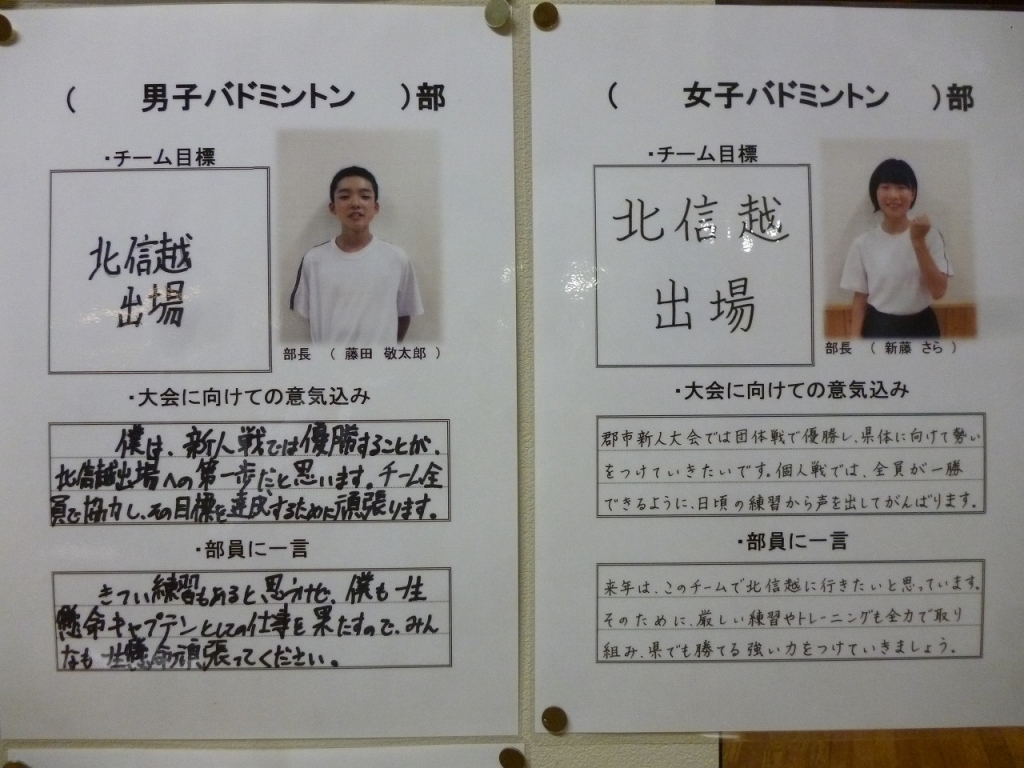 ( 男子バドミントン )部
・チーム目標
北信越
出場
部長 ( 藤田 敬太郎 )
・大会に向けての意気込み
僕は、新人戦では優勝することが、
北信越出場への第一歩だと思います。チーム全
員で協力し、その目標を達成するために頑張ります。
・部員に一言
きつい練習もあると思うけど、僕も一生
懸命キャプテンとしての仕事を果たすので、みん
なも一生懸命頑張ってください。
( 女子バドミントン )部
・チーム目標
北信越
出場
部長 ( 新藤 さら )
・大会に向けての意気込み
郡市新人大会では団体戦で優勝し、県体に向けて勢い
をつけていきたいです。個人戦では、全員が一勝
できるように、日頃の練習から声を出してがんばります。
・部員に一言
来年は、このチームで北信越に行きたいと思っています。
そのために、厳しい練習やトレーニングも全力で取り
組み、県でも勝てる強い力をつけていきましょう。